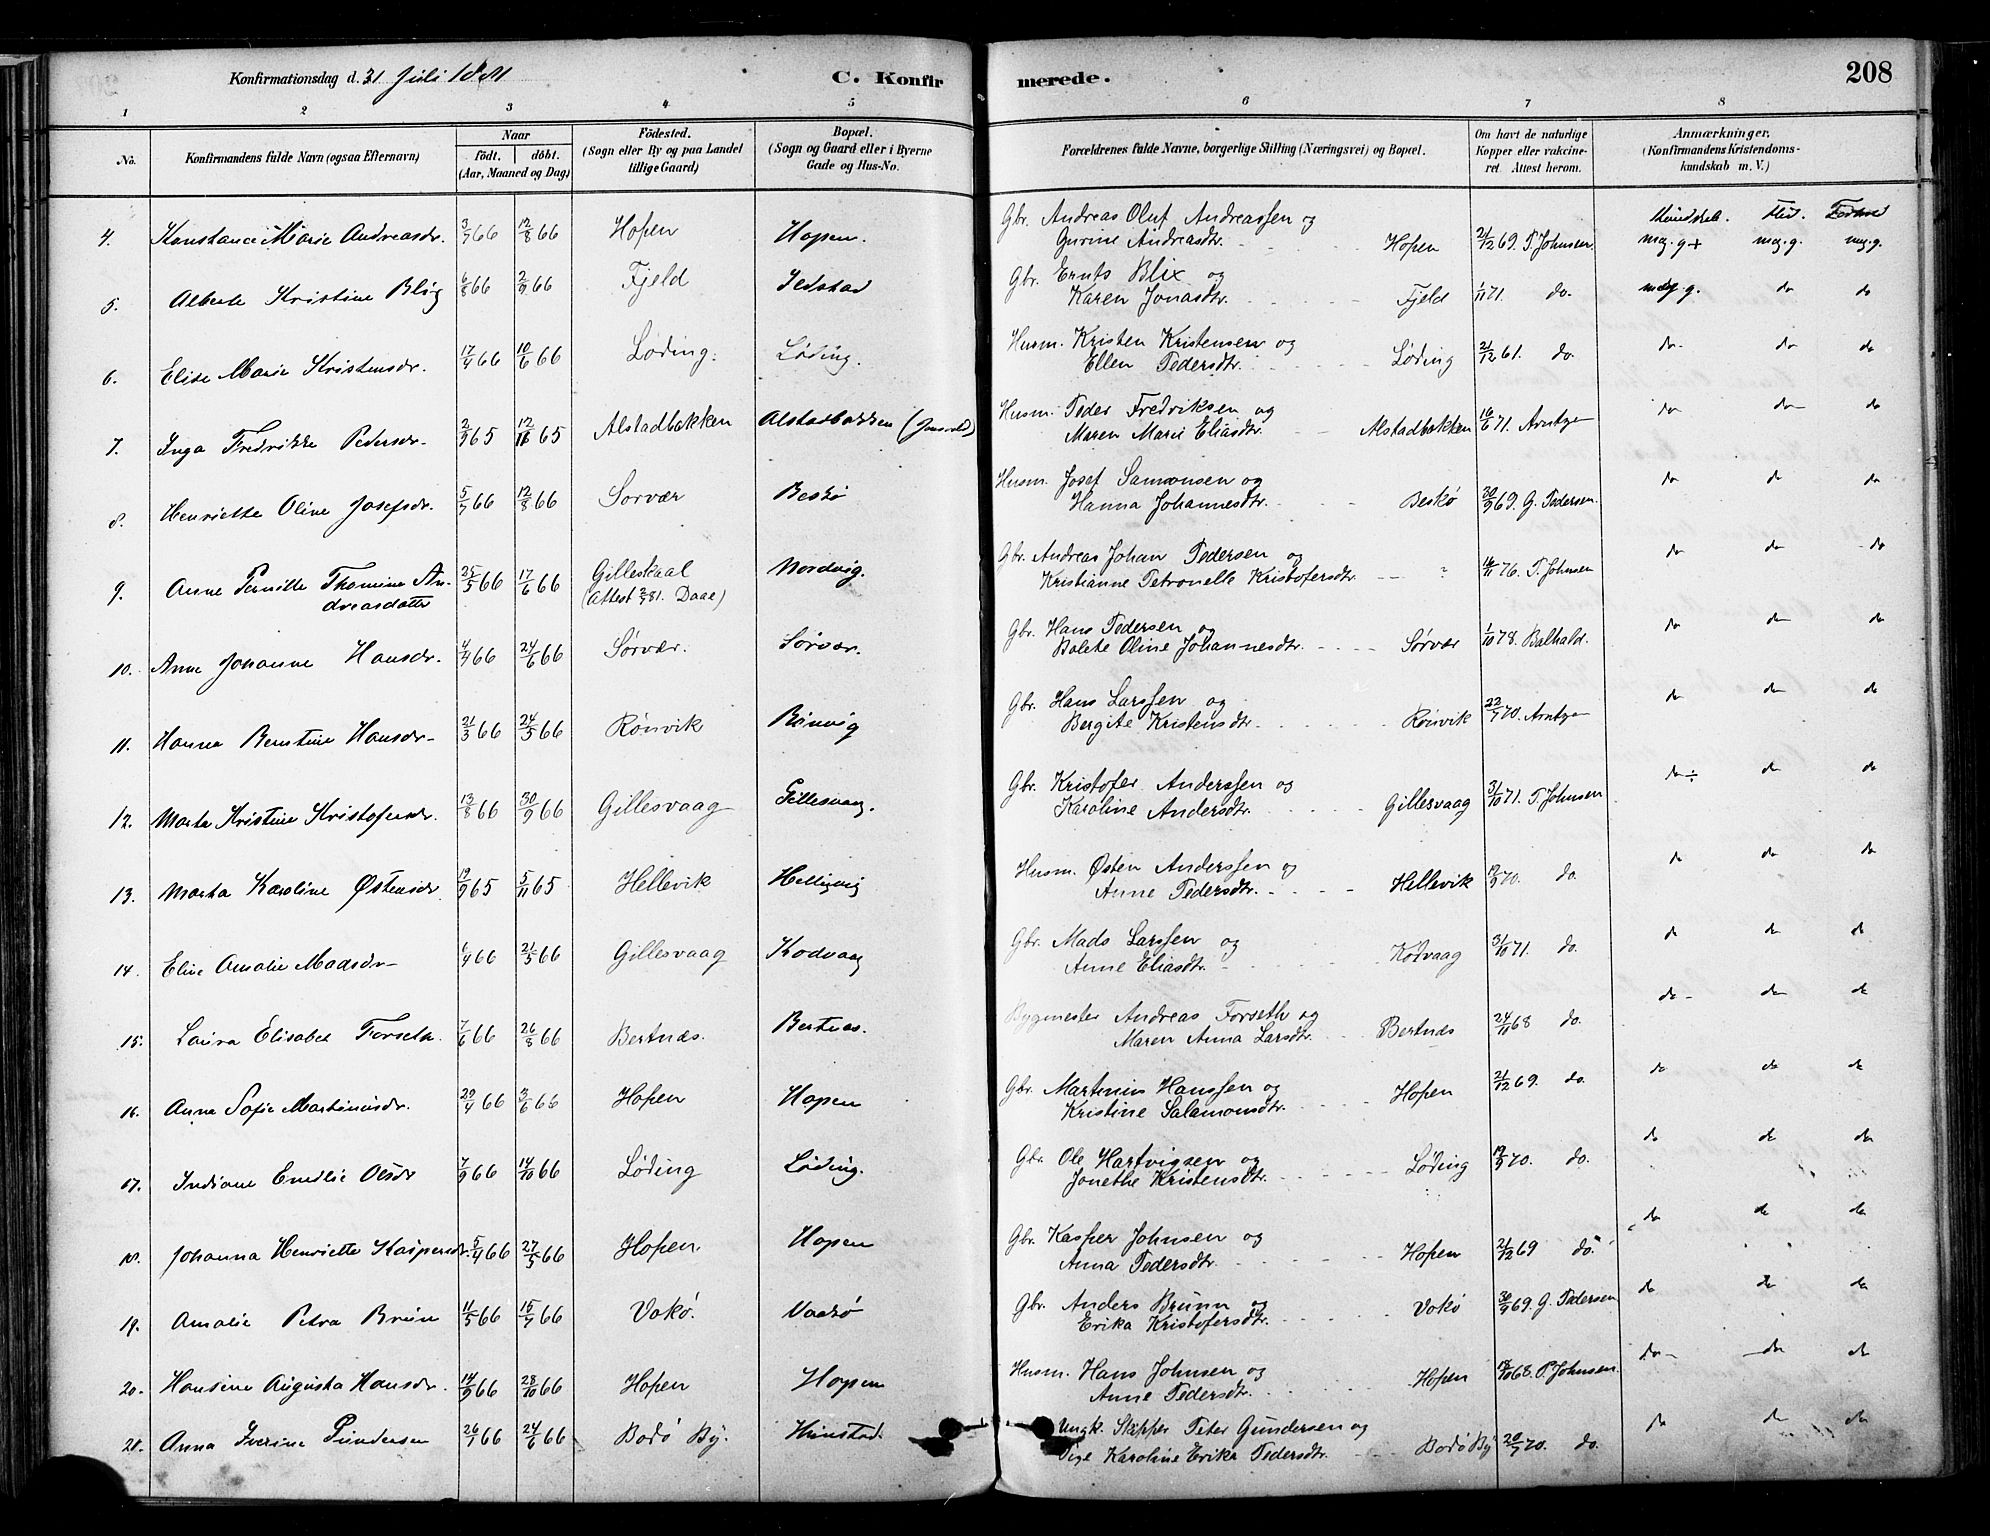 Konfirmationsdag d. 31 Juli 1881 C. Konfirmerede. 208
1 2 3 4 5 6 7 8
No. Konfirmandens fulde Navn (ogsaa Efternavn) Naar født. døbt. (Aar, Maaned og Dag) Fødested. (Sogn eller By og paa Landet tillige Gaard) Bopæl. (Sogn og Gaard eller i Byerne Gade og Hus-No. Forældrenes fulde Navne, borgerlige Stilling (Næringsvei) og Bopæl. Om havt de naturlige Kopper eller vakcineret. Attest herom. Anmærkninger. (Konfirmandens Kristendomskundskab m. V.)
Kundskab. Flid.
4. Konstance Marie Andreasdr. 3/7 66 12/8 66 Hopen Hopen. Gbr. Andreas Oluf Andreassen og
Gurine Andreasdtr. Hopen 21/12 69. T. Johnsen. meg. g+ meg. g. meg. g.
5. Alberte Kristine Blix 6/8 66 2/9 66 Fjeld Seistad Gbr. Ernts Blix og
Karen Jonasdtr. Fjeld 1/11 71. do. meg. g. do do
6. Elise Marie Kristensdr. 17/4 66 10/6 66 Løding. Løding. Husm. Kristen Kristensen og
Ellen Pedersdtr. Løding 21/12 61. do. do do do
7. Inga Fredrikke Pedersdr. 2/9 65 12/11 65 Alstadbakken Alstadbakken Husm. Peder Fredriksen og
Maren Marie Eliasdtr. Alstadbakken 16/6 71. Arntzen do do do
8. Henriette Oline Josefsdr. 5/7 66 12/8 66 Sørvær Beskø Husm. Josef Samonsen og
Hanna Johannesdtr. Beskø 30/9 69. G. Pedersen. do do do
9. Anne Pernille Thomine An- 25/5 66 17/6 66 Gilleskaal Nordvig. Gbr. Andreas Johan Pedersen og
dreasdatter (Attest 2/7 81. Daae) Kristianne Petronelle Kristofersdtr. ? 16/11 76. T. Johnsen do do do
10. Anne Johanne Hansdr. 4/4 66 24/6 66 Sørvær. Sørvær. Gbr. Hans Pedersen og
Bolete Oline Johannesdtr. Sørvær 1/10 78. Balhald. do do do
11. Hanna Berntine Hansdr. 21/3 66 24/5 66 Rønvik Rønvig Gbr. Hans Larssen og
Bergite Kristensdtr. Rønvik 22/7 70. Arntzen do do do
12. Marta Kristine Kristofersdr. 13/8 66 30/9 66 Gillesvaag Gillesvaag. Gbr. Kristofer Anderssen og
Karoline Andersdtr. Gillesvaag 31/10 71. T. Johnsen do ÷ do do
13. Marta Karoline Østensdr. 19/9 65 5/11 65 Hellevik Hellevig Husm. Østen Anderssen og
Anne Pedersdtr. Hellevik 19/9 70. do. do do do
14. Eline Amalie Madsdr. 6/4 66 21/5 66 Gillesvaag Kodvaag Gbr. Mads Larssen og
Anne Eliasdtr. Kodvaag 31/10 71. do. do do do
15. Laura Elisabet Forseth. 7/6 66 26/8 66 Bertnæs. Bertnæs. Bygmester Andreas Forseth og
Maren Anna Larsdtr. Bertnæs 24/11 68 do. do do do
16. Anna Sofie Martinusdr. 29/4 66 3/6 66 Hopen Hopen Gbr. Martinus Hanssen og
Kristine Salamonsdtr. Hopen 21/12 69. do. do do do
17. Indiane Emelie Olsdr 7/9 66 14/10 66 Løding Løding. Gbr. Ole Hartvigsen og
Jonethe Kristensdtr. Løding 19/9 70. do. do do do
18. Johanna Henriette Kaspersdr. 5/4 66 27/5 66 Hopen Hopen Gbr. Kasper Johnsen og
Anna Pedersdtr. Hopen 21/12 69 do. do do do
19. Amalie Petra Brun 11/5 66 15/7 66 Vokø. Vaakø Gbr. Anders Brunn og
Erika Kristofersdtr. Vokø 30/9 69. G. Pedersen do do do
20. Hansine Augusta Hansdr. 14/9 66 28/10 66 Hopen Hopen Husm. Hans Johnsen og
Anne Pedersdtr. Hopen 18/10 68. P. Johnsen. do do do
21. Anna Iverine Gundersen 26/1 66 24/6 66 Bodø By. Ungk. Peter Gundersen og
Pige Karoline Erika Pedersdtr. Bodø By 20/7 70. do. do do do